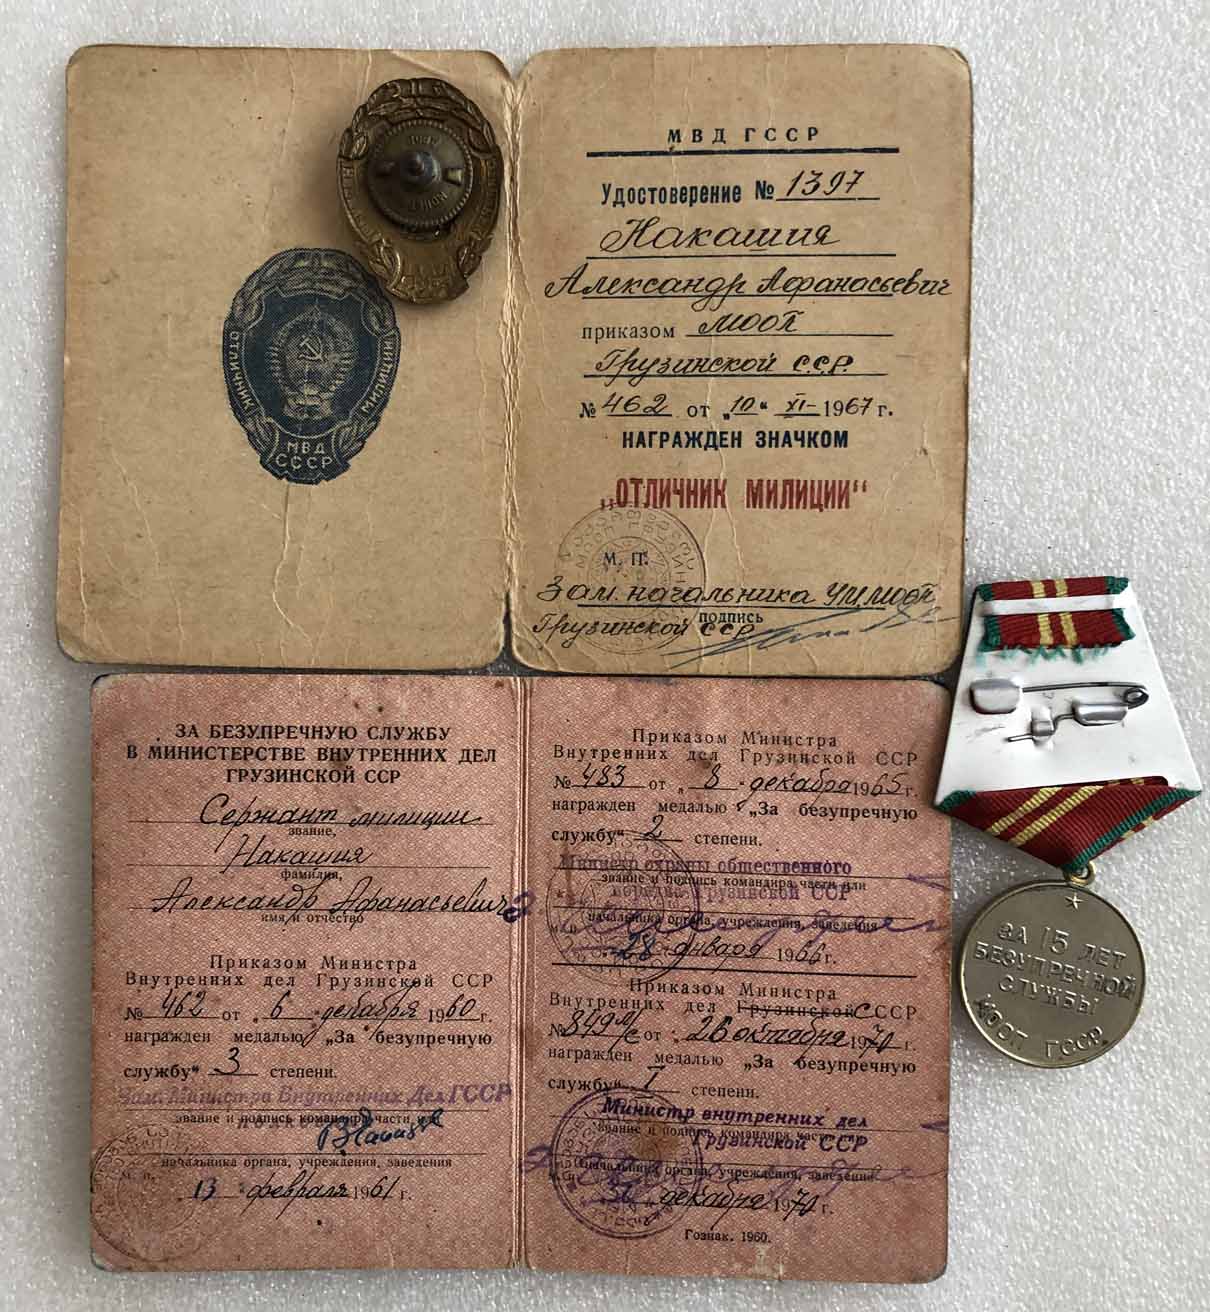 МВД ГССР
Удостоверение № 1397
Накашия
Александр Афанасьевич
приказом МООП
Грузинской ССР
№ 462 от „10“ XI- 1967 г.
НАГРАЖДЕН ЗНАЧКОМ
„ОТЛИЧНИК МИЛИЦИИ“
М. П.
Зам. начальника УМ МООП
подпись
Грузинской ССР
ОТЛИЧНИК МИЛИЦИИ
МВД
СССР
ЗА БЕЗУПРЕЧНУЮ СЛУЖБУ
В МИНИСТЕРСТВЕ ВНУТРЕННИХ ДЕЛ
ГРУЗИНСКОЙ ССР
Сержант милиции
звание,
Накашия
фамилия,
Александр Афанасьевич
имя и отчество
Приказом Министра
Внутренних дел Грузинской ССР
№ 462 от „ 6 “ декабря 1960 г.
награжден медалью „За безупречную
службу“ 3 степени.
Зам. Министра Внутренних Дел ГССР
звание и подпись командира части или
начальника органа, учреждения, заведения
13 февраля 1961 г.
Приказом Министра
Внутренних дел Грузинской ССР
№ 483 от „ 8 “ декабря 1965 г.
награжден медалью „За безупречную
службу“ 2 степени.
Министр охраны общественного
звание и подпись командира части или
порядка Грузинской ССР
начальника органа, учреждения, заведения
28 января 1966 г.
Приказом Министра
Внутренних дел Грузинской СССР
№ 849 л/с от „ 26 октября 1970 г.
награжден медалью „За безупречную
службу“ I степени.
Министр внутренних дел
звание и подпись командира части или
Грузинской ССР
начальника органа, учреждения, заведения
декабря 1970 г.
Гознак. 1960.
ЗА 15 ЛЕТ
БЕЗУПРЕЧНОЙ
СЛУЖБЫ
МООП ГССР